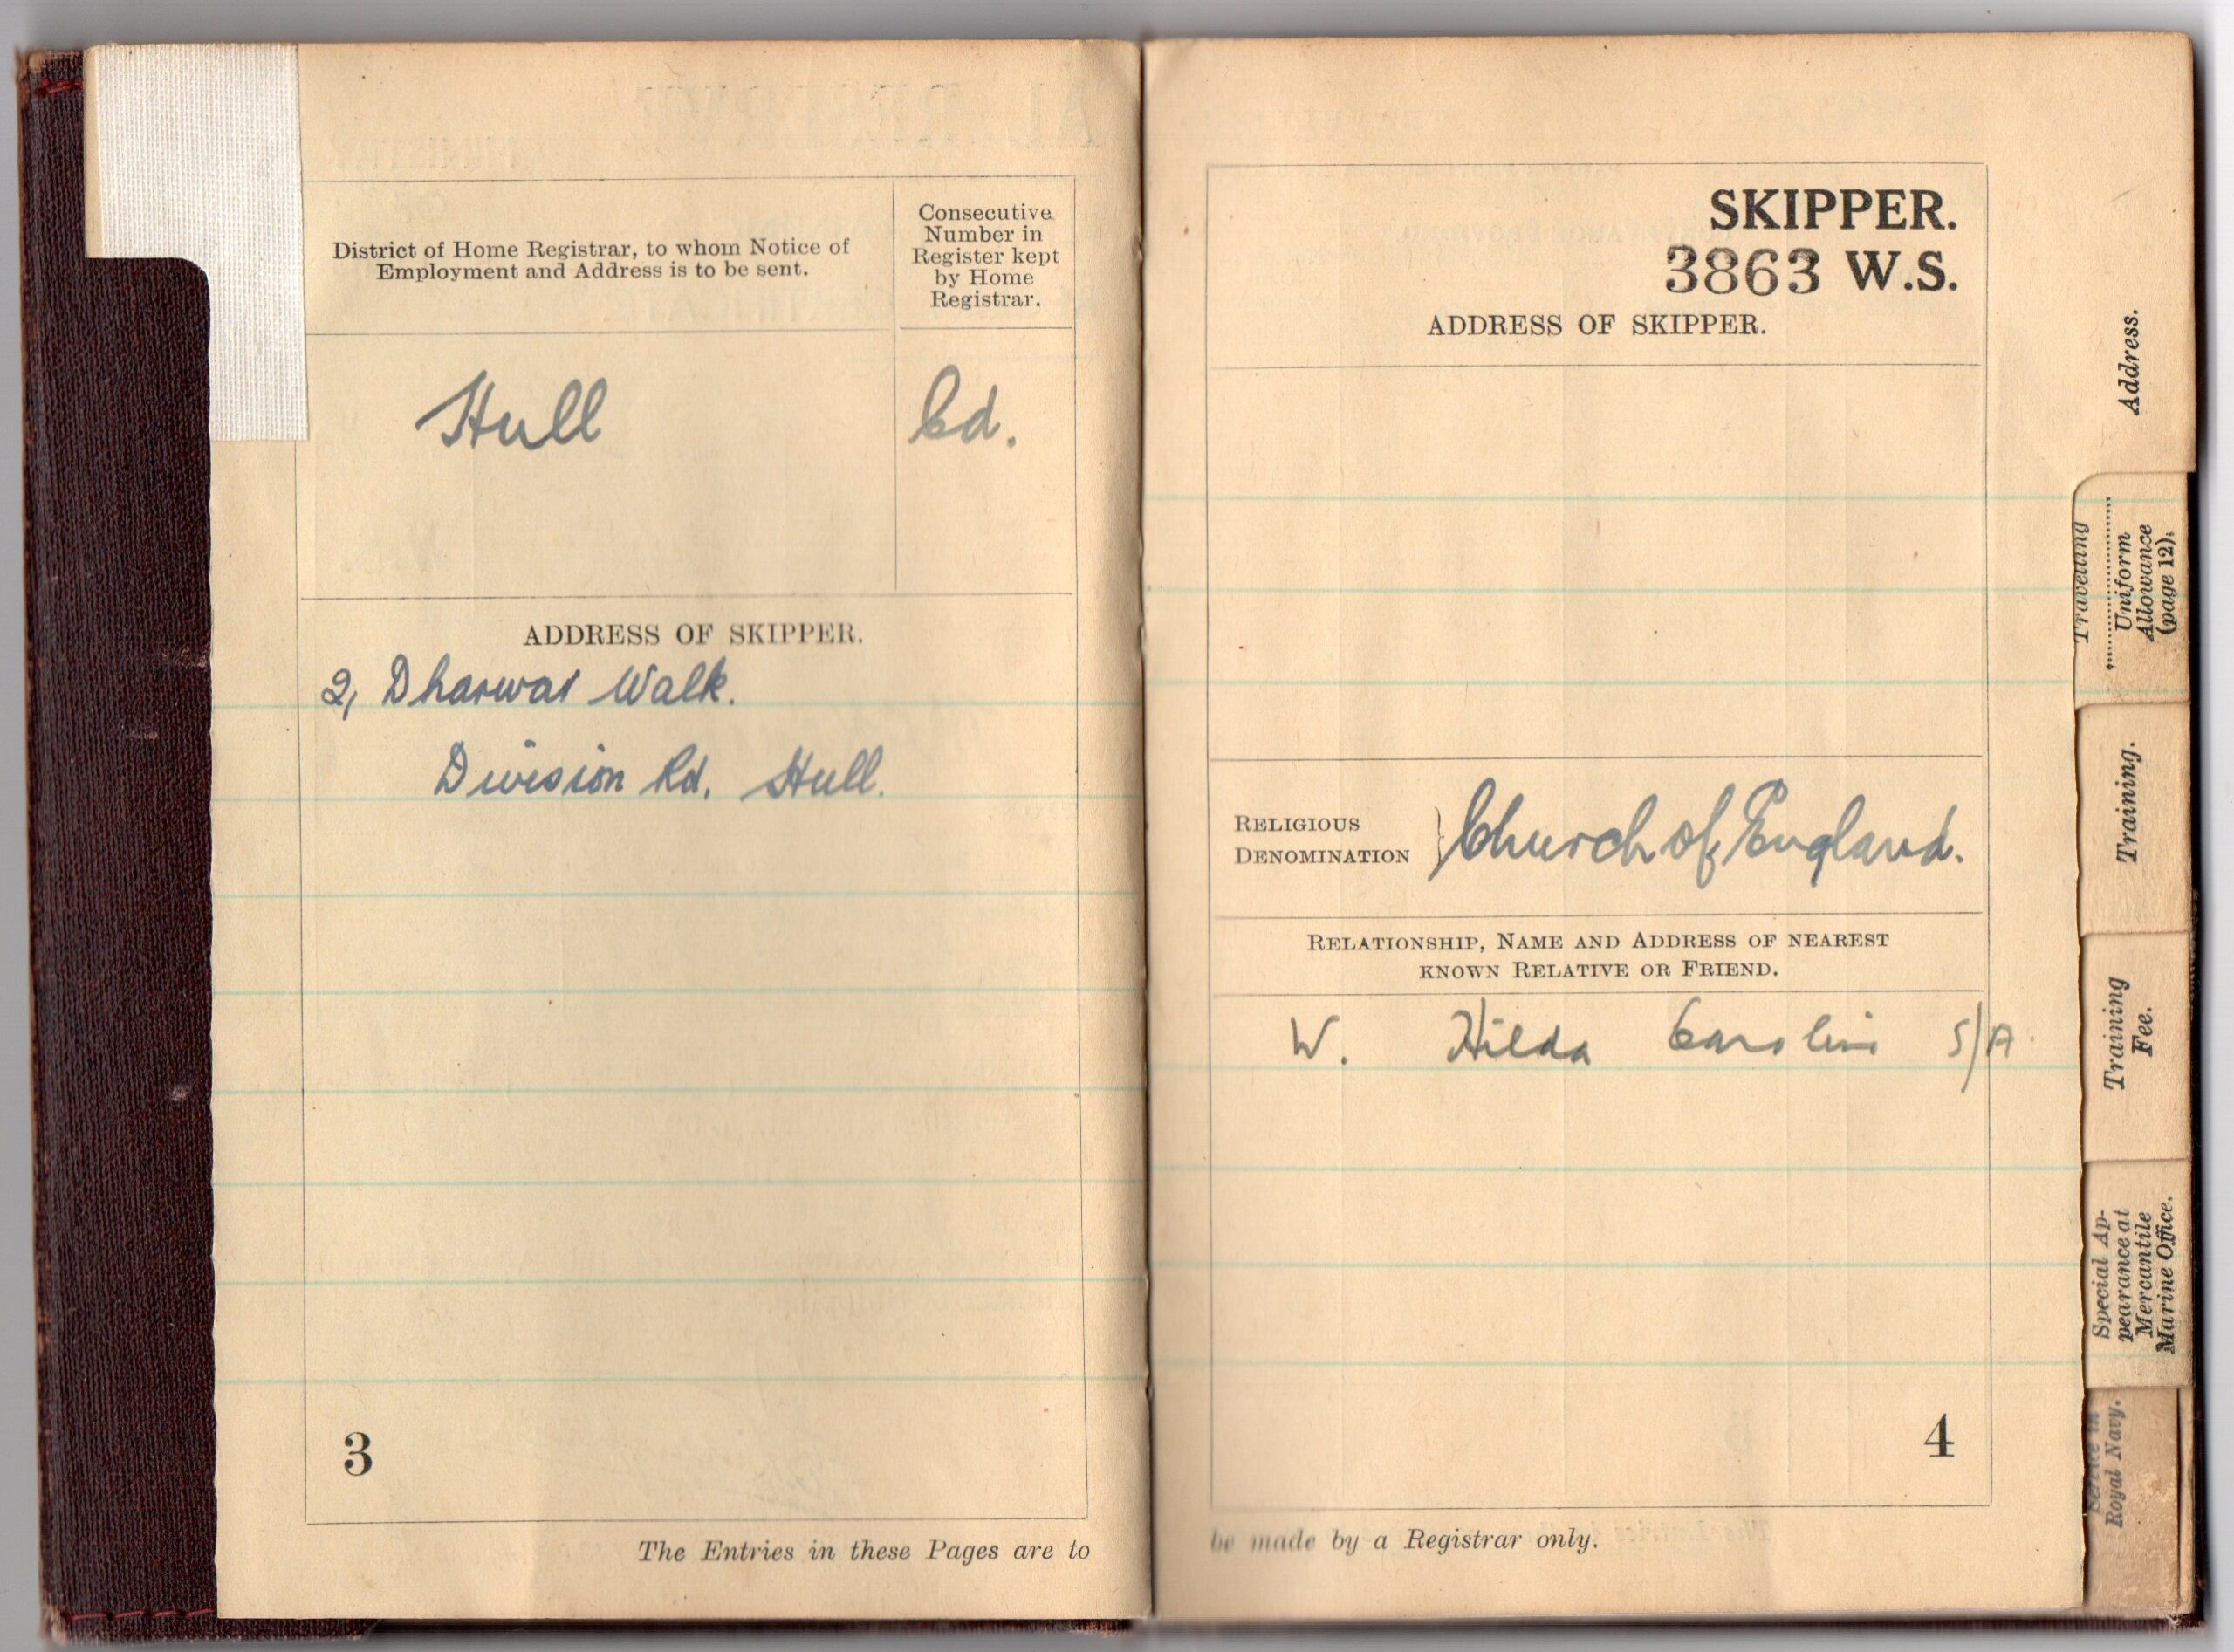 District of Home Registrar, to whom Notice of
Employment and Address is to be sent.
Consecutive
Number in
Register kept
by Home
Registrar.
Hull
Cd.
ADDRESS OF SKIPPER.
2, Dharwar Walk.
Division Rd. Hull.
3
The Entries in these Pages are to
SKIPPER.
3863 W.S.
ADDRESS OF SKIPPER.
RELIGIOUS
DENOMINATION } Church of England.
RELATIONSHIP, NAME AND ADDRESS OF NEAREST
KNOWN RELATIVE OR FRIEND.
W. Hilda Caroline S/A
4
be made by a Registrar only.
Address.
Travelling
Uniform
Allowance
(page 12).
Training.
Training
Fee.
Special Ap-
pearance at
Mercantile
Marine Office.
Service in
Royal Navy.